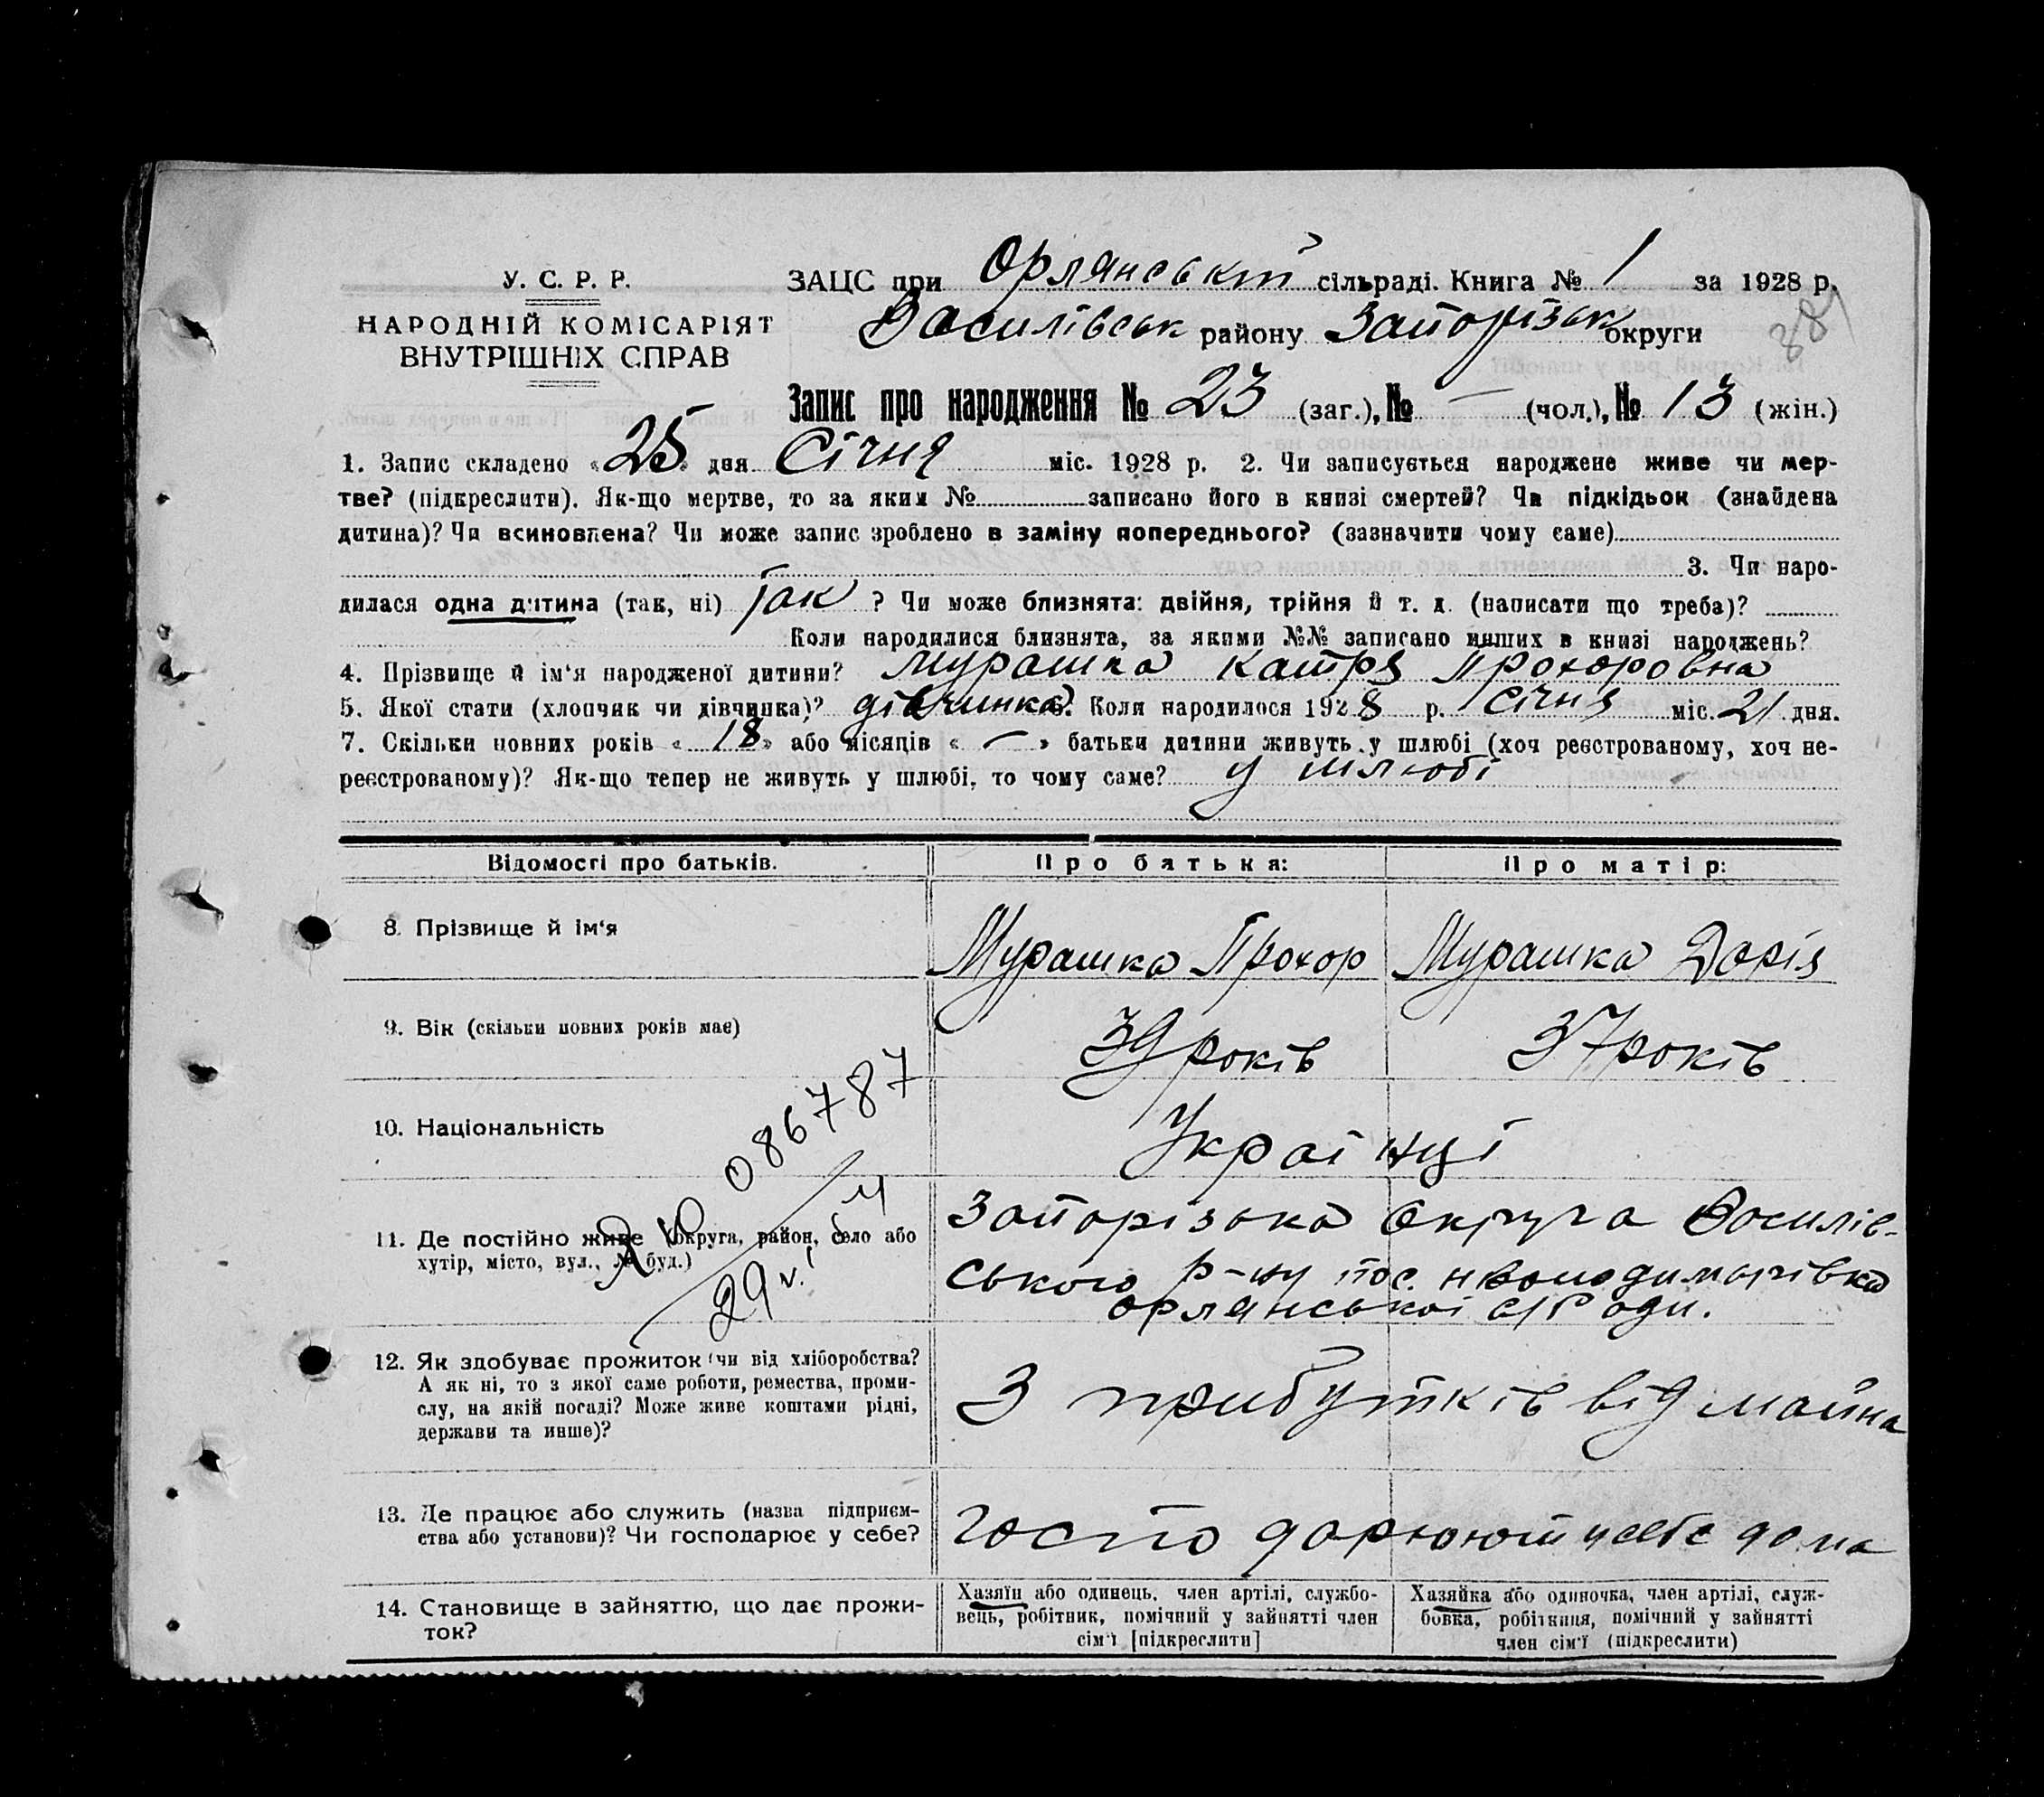 У. С. Р. Р.
НАРОДНІЙ КОМІСАРІЯТ
ВНУТРІШНІХ СПРАВ
ЗАЦС при Орлянській сільраді. Книга № 1 за 1928 р.
Василівськ району Запорізьк округи
Запис про народження № 23 (заг.), № — (чол.), № 13 (жін.)
1. Запис складено «25» дня Січня міс. 1928 р. 2. Чи записується народжене живе чи мер-
тве? (підкреслити). Як-що мертве, то за яким № записано його в книзі смертей? Чи підкідьок (знайдена
дитина)? Чи всиновлена? Чи може запис зроблено в заміну попереднього? (зазначити чому саме)
3. Чи наро-
дилася одна дитина (так, ні) Так ? Чи може близнята: двійня, трійня й т. д. (написати що треба)?
Коли народилися близнята, за якими №№ записано инших в книзі народжень?
4. Прізвище й ім'я народженої дитини? Мурашка Катря Прохоровна
5. Якої стати (хлопчик чи дівчинка)? дівчинка 6. Коли народилося 1928 р. Січня міс. 21 дня.
7. Скільки повних років «18» або місяців «—» батьки дитини живуть у шлюбі (хоч реєстрованому, хоч не-
реєстрованому)? Як-що тепер не живуть у шлюбі, то чому саме? у шлюбі
Відомості про батьків. Про батька: Про матір:
8. Прізвище й ім'я Мурашка Прохор Мурашка Дарія
9. Вік (скільки повних років має) 39 років 37 років
10. Національність Українці
086787
11. Де постійно живе (округа, район, село або
хутір, місто, вул., № буд.)
Запорізька округа Василів-
ського р-ну пос.
Орлянської с/Ради.
12. Як здобуває прожиток (чи від хліборобства?
А як ні, то з якої саме роботи, ремества, проми-
слу, на якій посаді? Може живе коштами рідні,
держави та инше)?
З прибутків від майна
13. Де працює або служить (назва підприєм-
ства або установи)? Чи господарює у себе?
Господарюют у себе дома
14. Становище в зайняттю, що дає прожи-
ток?
Хазяїн або одинець, член артілі, службо-
вець, робітник, помічний у зайнятті член
сім'ї [підкреслити]
Хазяйка або одиночка, член артілі, служ-
бовка, робітниця, помічний у зайнятті
член сім'ї (підкреслити)